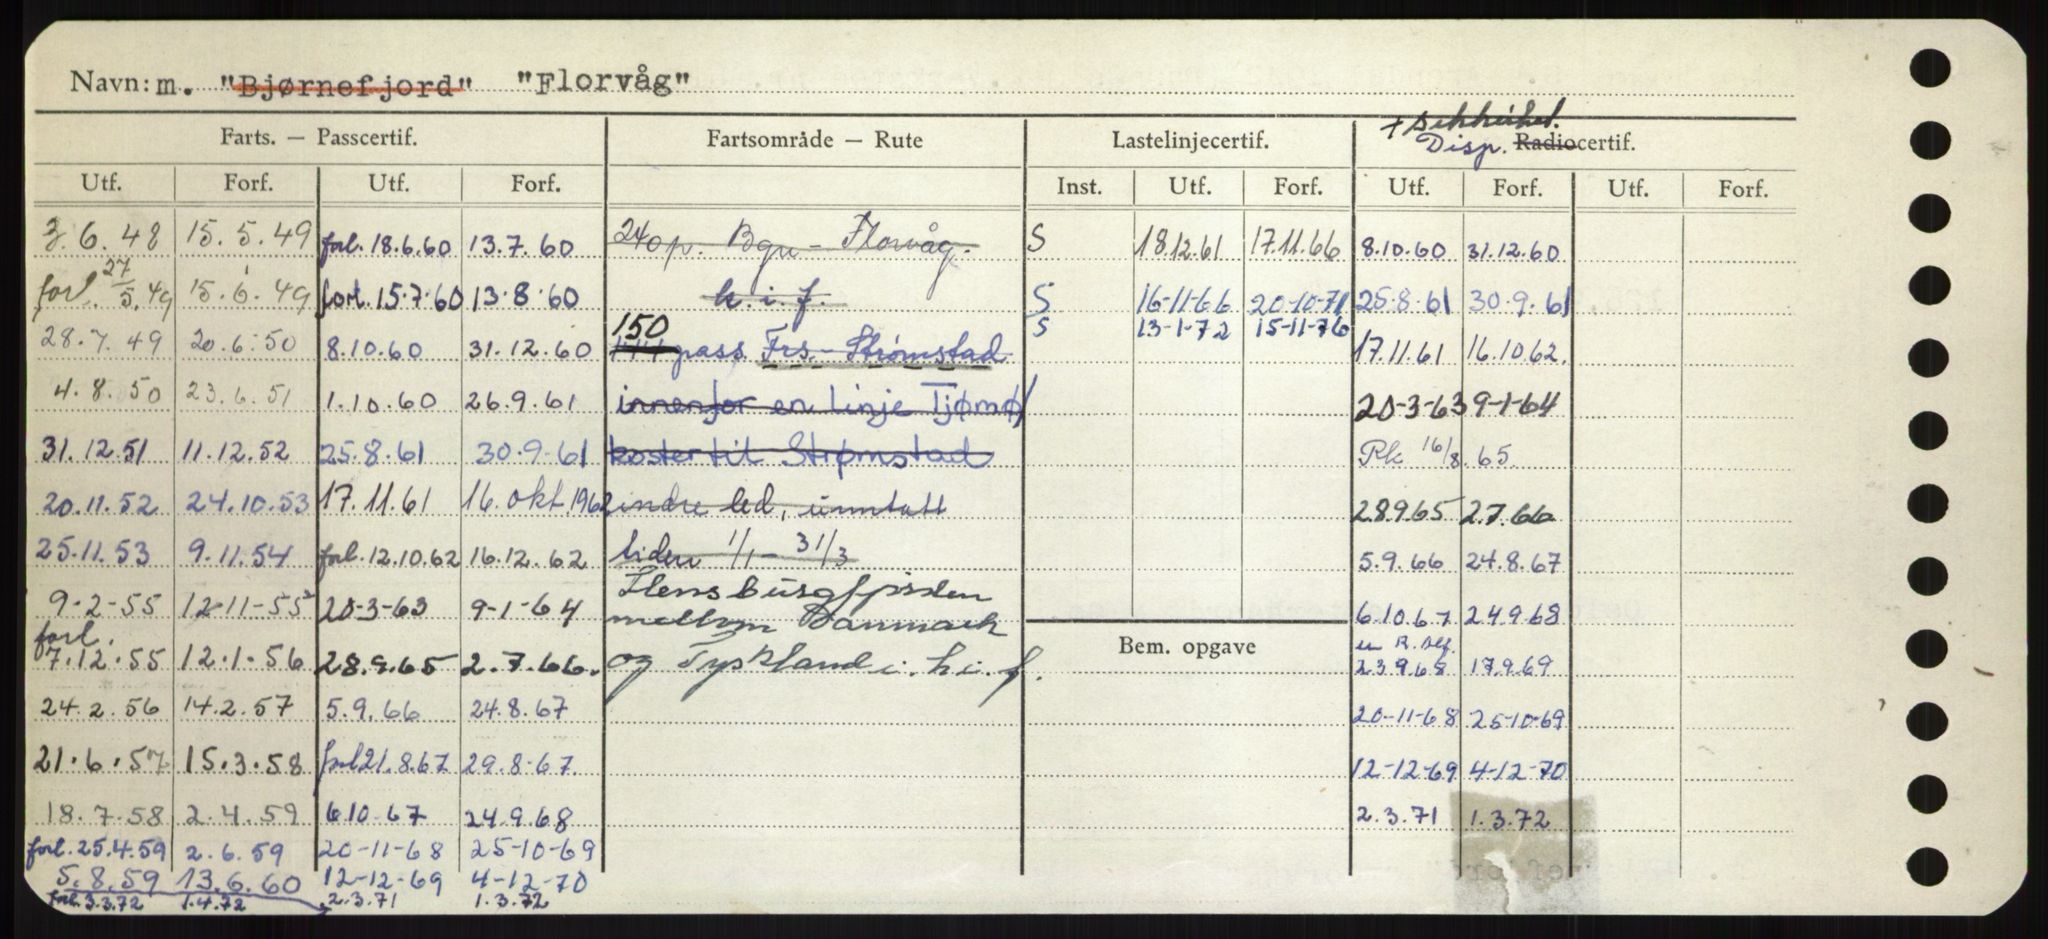 Navn: m. "Bjørnefjord" "Florvåg"
Farts. — Passcertif. Fartsområde — Rute Lastelinjecertif. + Sikkerhet. Disp. Radiocertif.
Utf. Forf. Utf. Forf. Inst. Utf. Forf. Utf. Forf. Utf. Forf.
3.6.48 15.5.49 forl. 18.6.60 13.7.60 240 p. Bgn - Florvåg. S 18.12.61 17.11.66 8.10.60 31.12.60
forl. 27/5.49 15.6.49 forl. 15.7.60 13.8.60 h.i.f. S 16-11-66 20-10-71 25.8.61 30.9.61
S 13-1-72 15-11-76
28.7.49 20.6.50 8.10.60 31.12.60 150 pass. Frs. - Strømstad 17.11.61 16.10.62.
4.8.50 23.6.51 1.10.60 26.9.61 innenfor en linje Tjømø/ 20-3-63 9-1-64
31.12.51 11.12.52 25.8.61 30.9.61 koster til Strømstad Pk 16/8.65.
20.11.52 24.10.53 17.11.61 16. okt. 1962 indre led, unntatt 28.9.65 2.7.66
25.11.53 9.11.54 forl. 12.10.62 16.12.62 tiden 1/1 - 31/3 5.9.66 24.8.67
9-2-55 12-11-55 20-3-63 9-1-64 Flensburgfjorden mellom Danmark 6.10.67 24.9.68
forl. 7.12.55 12.1.56 28.9.65 2.7.66. og Tyskland i. h.i.f. Bem. opgave 23.9.68 17.9.69
24.2.56 14.2.57 5.9.66 24.8.67 20-11-68 25-10-69
21.6.57 15.3.58 forl 21.8.67 29.8.67. 12-12-69 4-12-70
18.7.58 2.4.59 6.10.67 24.9.68 2.3.71 1.3.72
forl. 25.4.59 2.6.59 20-11-68 25-10-69
5.8.59 13.6.60 12-12-69 4-12-70
forl. 3.3.72 1.4.72 2.3.71 1.3.72